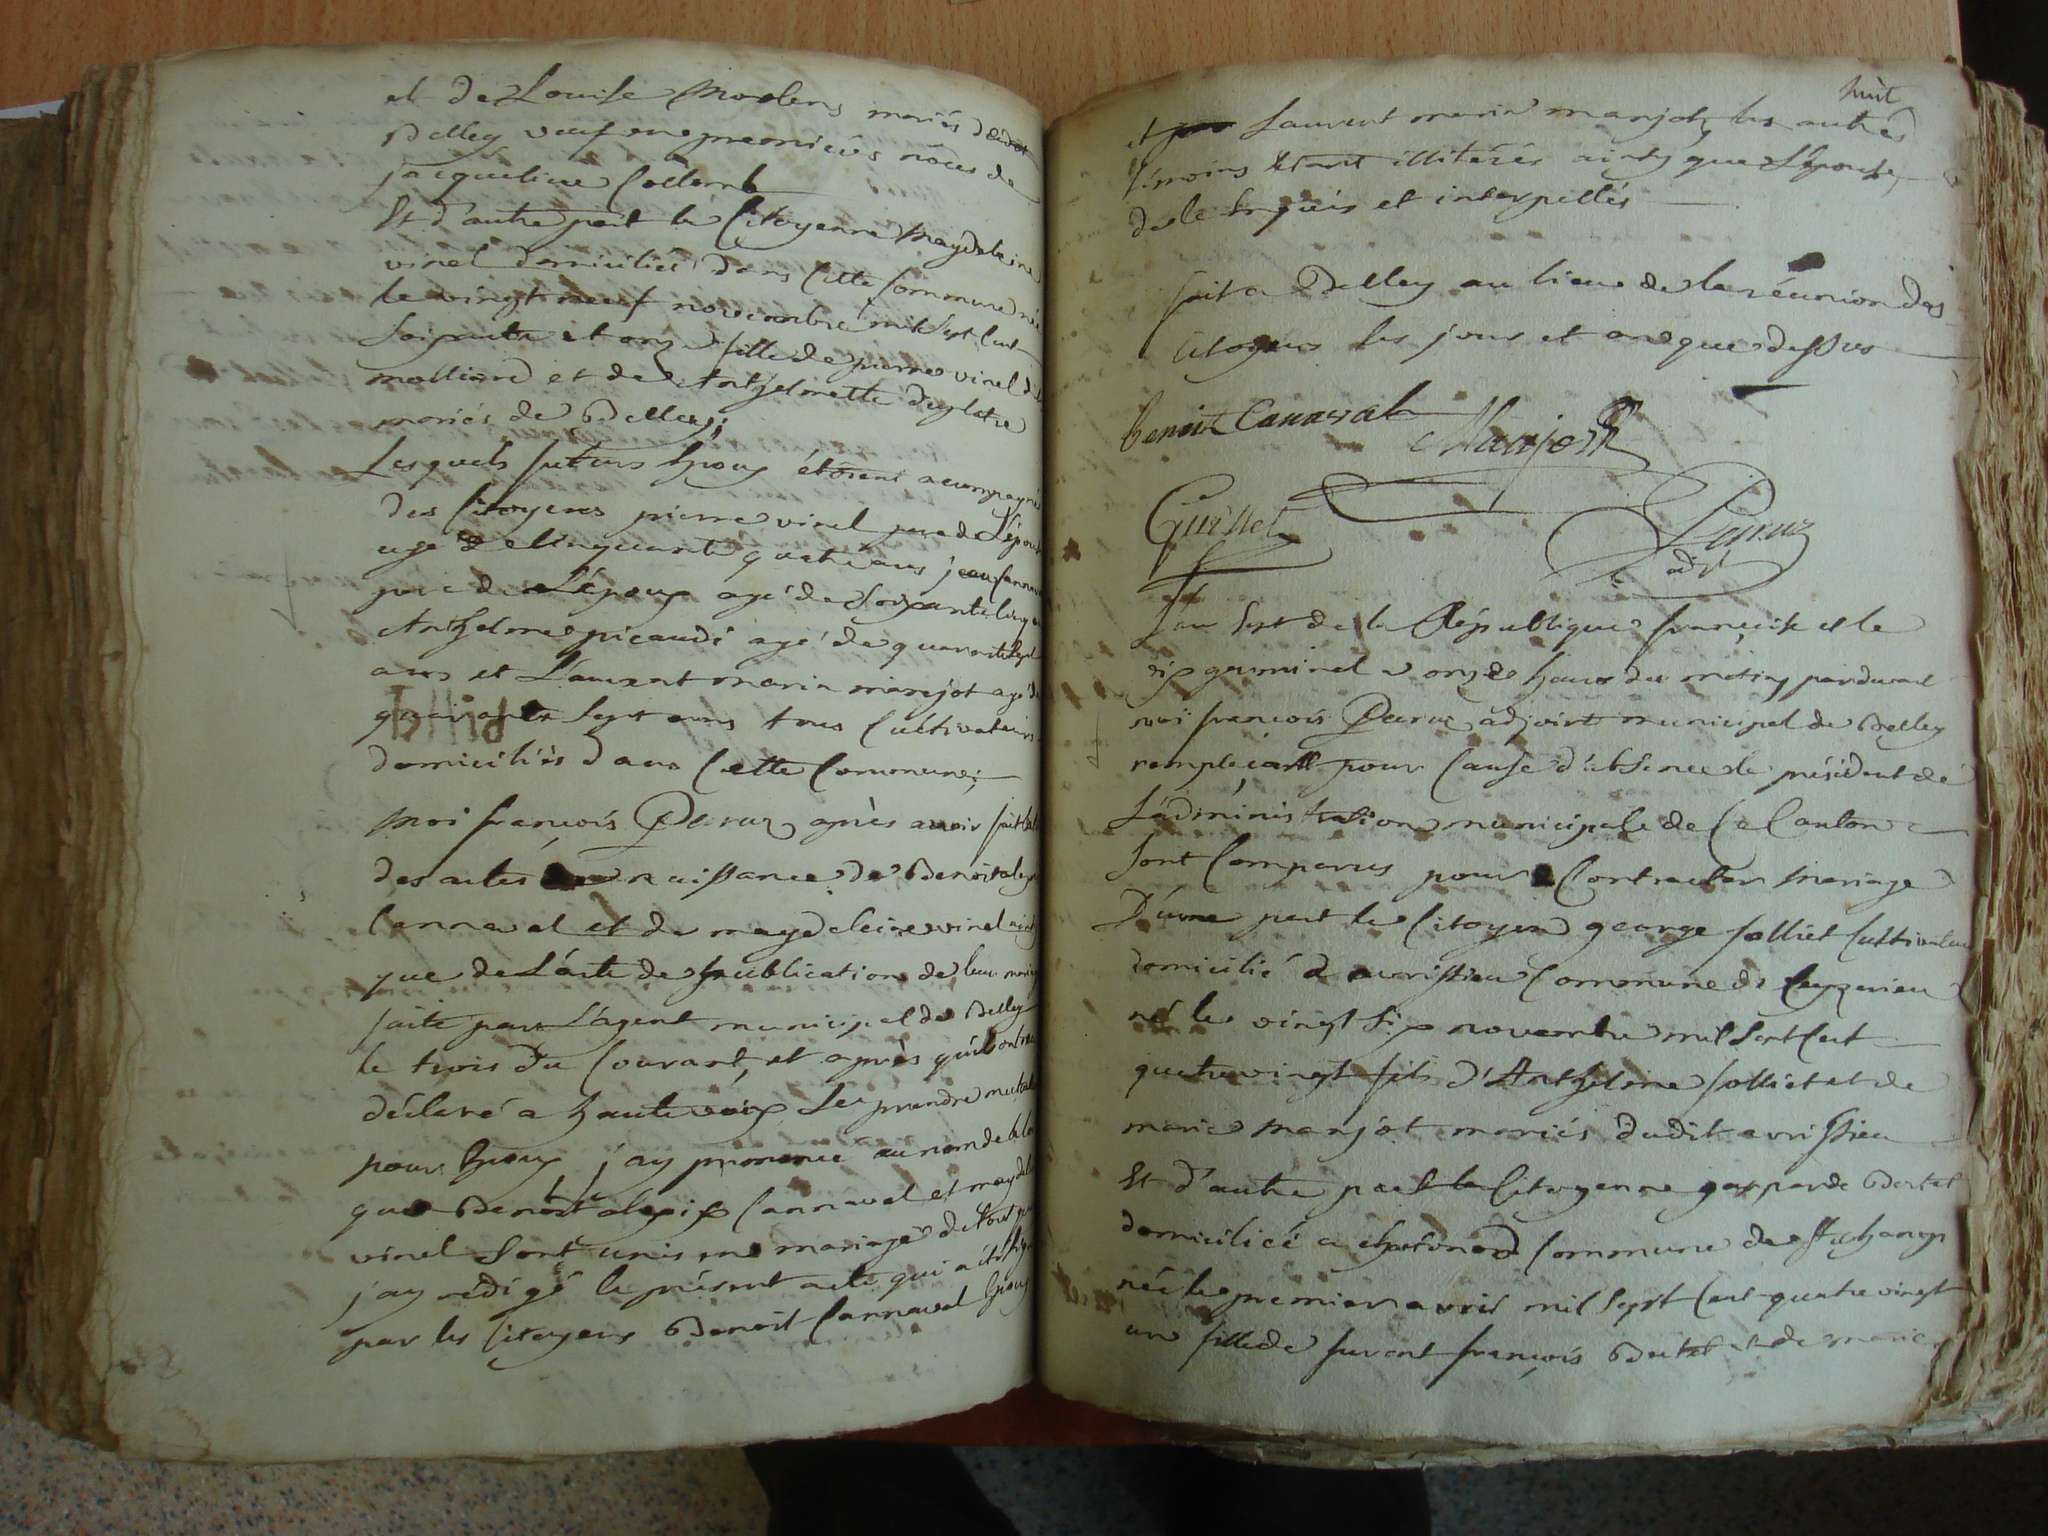 et de Louise mariés dudit
Belley veuf en premières nôces de
jacqueline Collomb
Et d'autre part la Citoyenne Magdelaine
vinel domiciliée dans Cette Commune née
le vingt neuf novembre mil Sept Cent
Soixante et onze fille de pierre vinel
et de Anthelmette
mariés de Belley;
Lesquels futurs Epoux étoient acompagnés
des Citoyens pierre vinel pere de L'épouse
agé de Cinquante quatre ans jean Cannaval
pere de L'époux agé de Soixante
Anthelme picaudi agé de quarante Sept
ans et Laurent marin manjot agé de
quarante Sept ans tous Cultivateurs
domiciliés dans Cette Commune;
Moi françois Peruz après avoir fait
des actes de naissance de Benoit alexis
Cannaval et de magdeleine vinel
que de L'acte de publication de leur mariage
faite par L'agent municipal de Belley
le trois du Courant, et après qu'ils ont
déclaré a haute voix Se prendre
pour Epoux j'ay prononcé au nom de la loi
que Benoit alexis Cannaval et magdeleine
vinel Sont unis en mariage de tout quoi
j'ay rédigé le présent acte qui a été Signé
par les Citoyens Benoit Cannaval Epoux
huit
et Laurent marin manjot, les autres
témoins étant illitérés ainsy que L'épouse,
de le enquis et interpellés
fait a Belley au lieu de la réunion des
Citoyens les jours et an que dessus
benoit Canaval Manjot
Guillet Peruz
adjt
L'an Sept de la République françoise et le
dix germinal a onze heures du matin pardevant
moi françois Peruz adjoint municipal de Belley
remplaçant pour Cause d'absence le président de
L'administration municipale de Ce Canton
Sont Comparus pour Contracter Mariage
D'une part le Citoyen george Jolliet Cultivateur
domicilié a avrissieu Commune de Ceyzerieu
né le vingt Six novembre mil Sept Cent
quatre vingt fils d'Anthelme Jolliet et de
marie Manjot mariés dudit avrissieu
Et d'autre part la Citoyenne gasparde Bertet
domiciliée a Chatonod Commune de St Champ
née le premier avril mil Sept Cent quatre vingt
un fille de françois Bertet et de marie